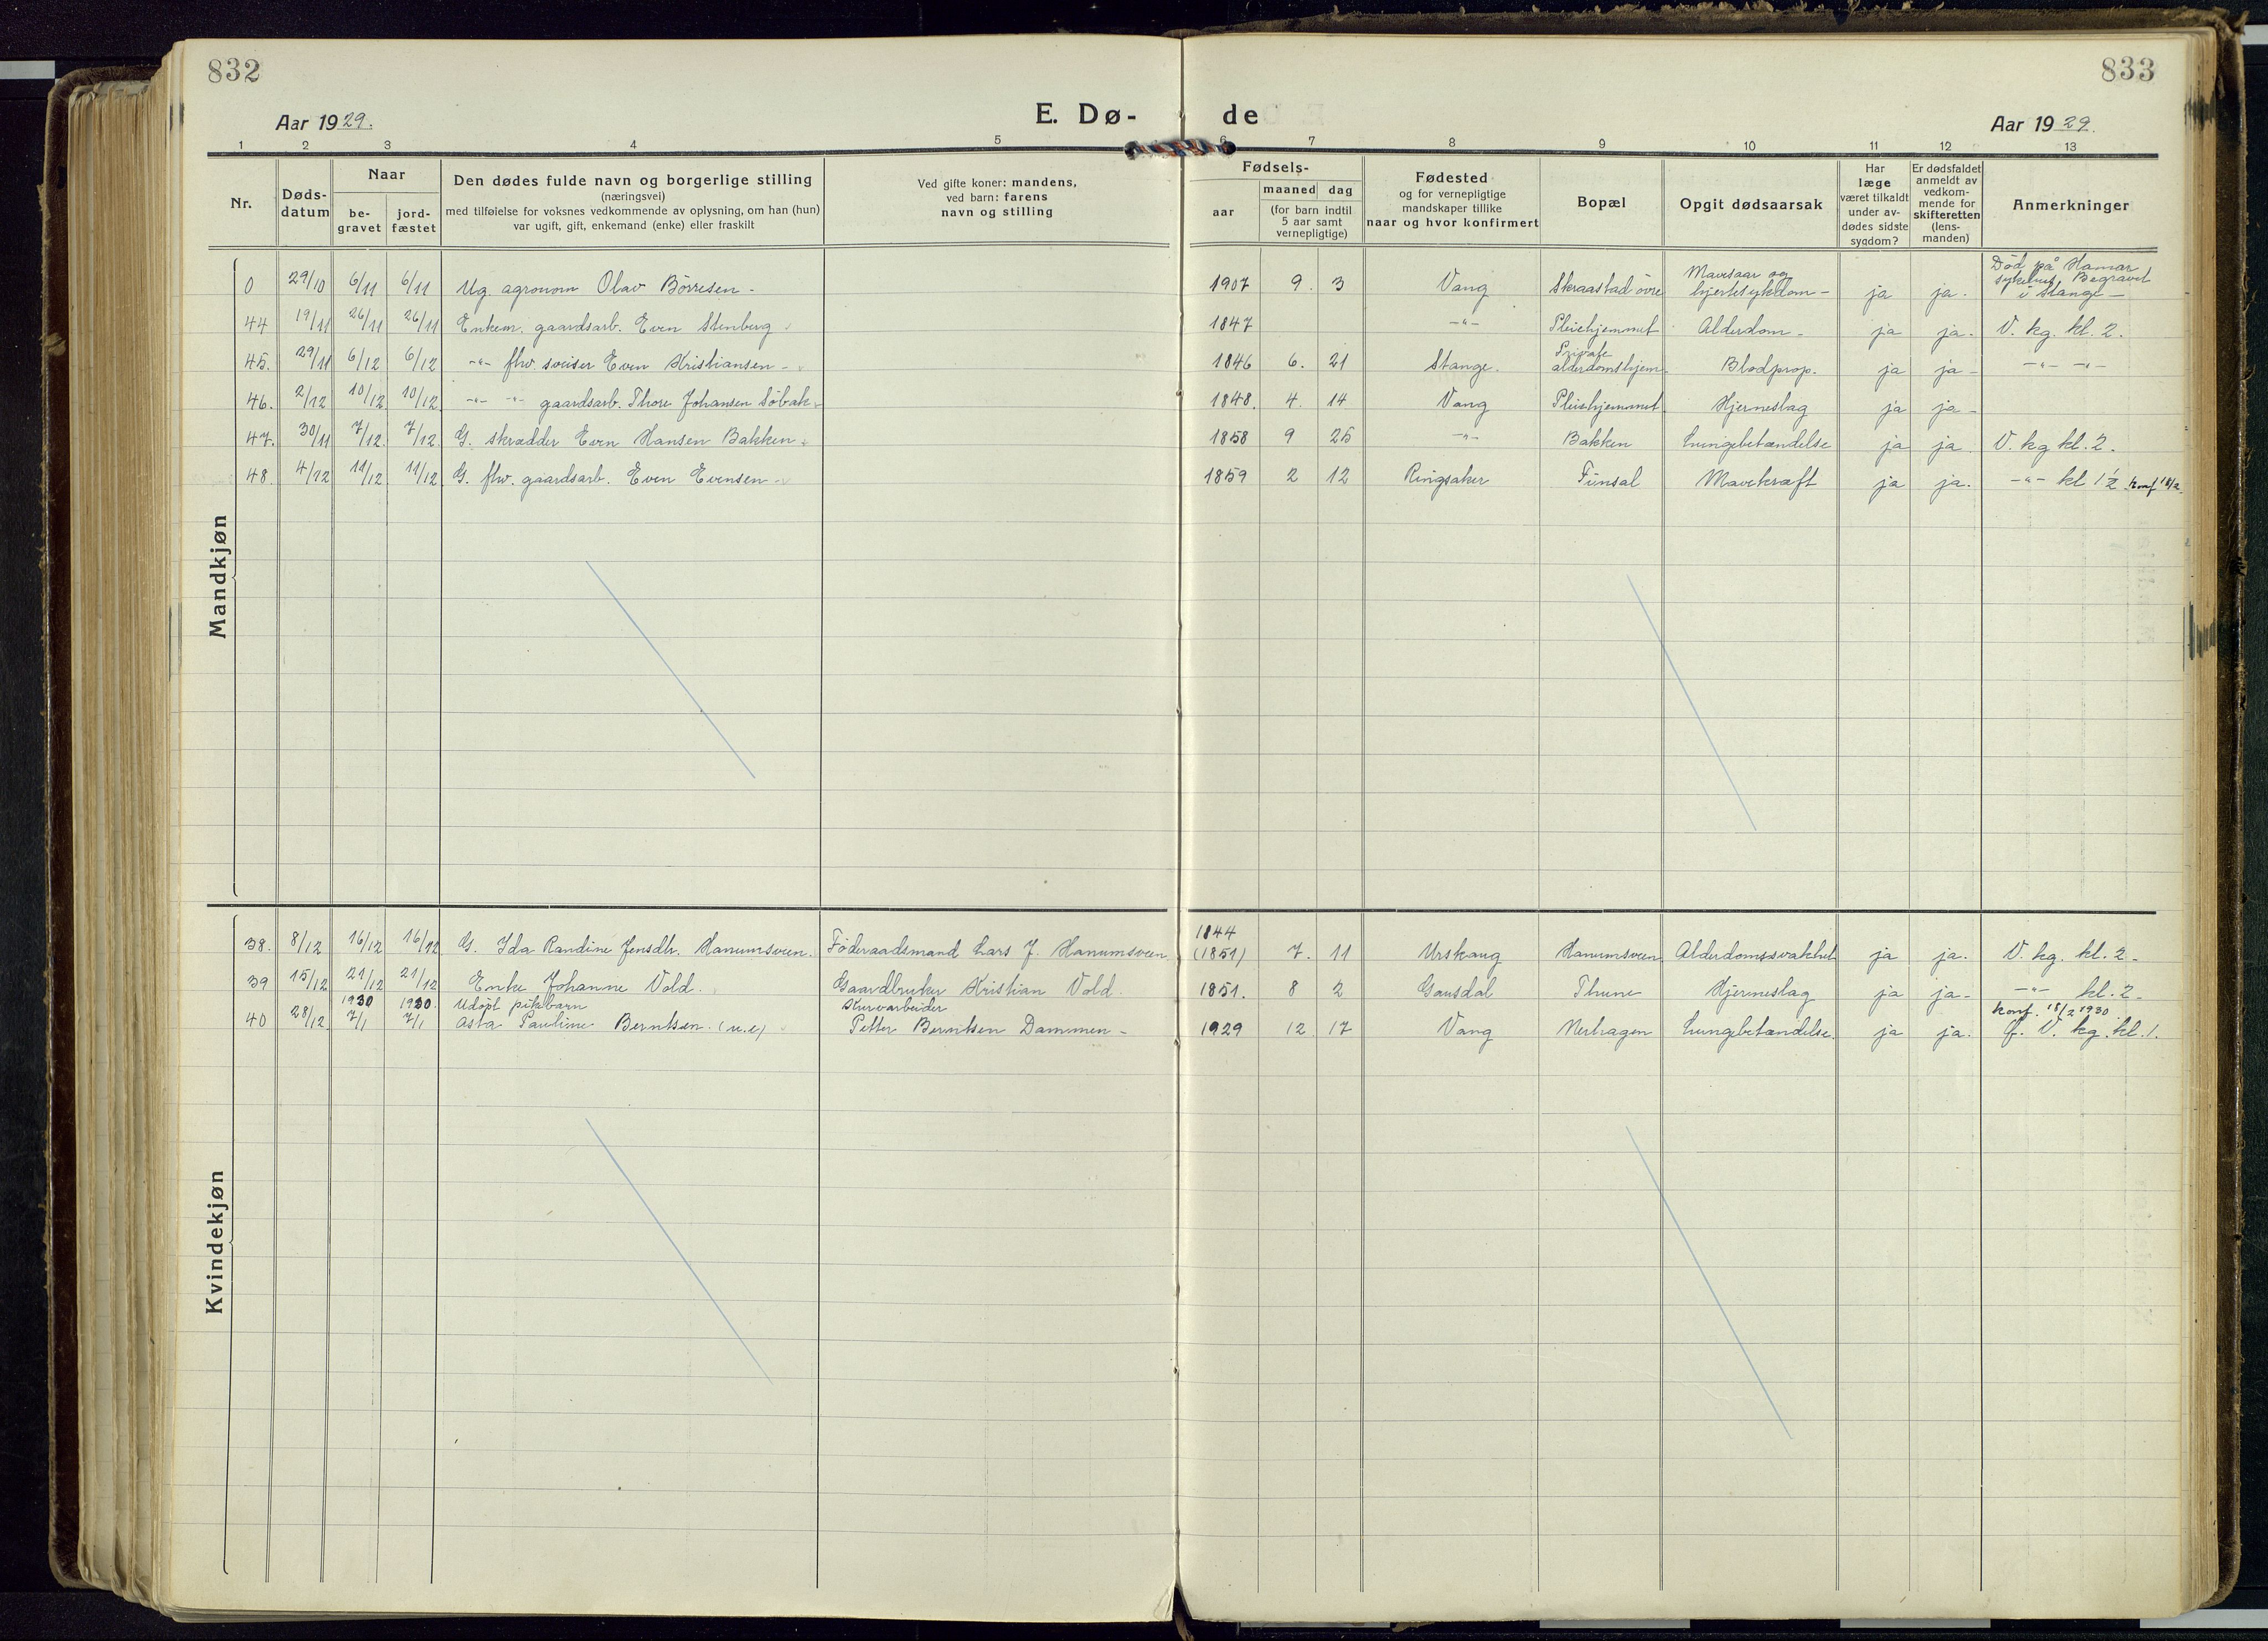 832
833
Aar 1929.
E. Dø-
de
Aar 1929.
1 2 3 4 5 6 7 8 9 10 11 12 13
Nr.
Døds-
datum
Naar
be-
gravet
jord-
fæstet
Den dødes fulde navn og borgerlige stilling
(næringsvei)
med tilføielse for voksnes vedkommende av oplysning, om han (hun)
var ugift, gift, enkemand (enke) eller fraskilt
Ved gifte koner: mandens,
ved barn: farens
navn og stilling
Fødsels-
aar
maaned dag
(for barn indtil
5 aar samt
vernepligtige)
Fødested
og for vernepligtige
mandskaper tillike
naar og hvor konfirmert
Bopæl
Opgit dødsaarsak
Har
læge
været tilkaldt
under av-
dødes sidste
sygdom?
Er dødsfaldet
anmeldt av
vedkom-
mende for
skifteretten
(lens-
manden)
Anmerkninger
Mandkjøn
0 29/10 6/11 6/11 Ug. agronom Olav Börresen - 1907 9. 3 Vang Skraastad övre Mavesaar og hjertesykdom - ja ja. Död på Hamar sykehus Begravet i Stange -
44 19/11 26/11 26/11 Enkem. gaardsarb. Even Stenberg 1847 -"- Pleiehjemmet Alderdom - ja ja. V. kg. kl. 2.
45. 29/11 6/12 6/12 -"- fhv. sveiser Even Kristiansen - 1846 6. 21 Stange. Private alderdomshjem. Blodprop. ja ja - -"- -"-
46. 2/12 10/12 10/12 -"- -"- gaardsarb. Thore Johansen Söbak 1848. 4. 14 Vang Pleiehjemmet Hjerneslag ja ja -
47. 30/11 7/12. 7/12. G. skrædder Even Hansen Bakken 1858 9 25 -"- Bakken Lungebetændelse ja ja. V. kg kl. 2.
48. 4/12 11/12 11/12 G. fhv. gaardsarb. Even Evensen - 1859 2 12 Ringsaker Finsal Mavekræft ja ja. -"- kl 1½ konf 18/2.
Kvindekjøn
38. 8/12 16/12 16/12 G. Ida Randine Jensdtr. Hanumsveen. Föderaadsmand Lars J. Hanumsveen 1844 (1851) 7. 11 Urskaug Hanumsveen Alderdomssvakhet ja ja. V. kg. kl. 2 -
39 15/12 21/12 21/12 Enke Johanne Vold. Gaardbruker Kristian Vold. 1851. 8 2 Gausdal Thune Hjerneslag ja ja - -"- kl. 2 -
40 28/12 1930 7/1 1930. 7/1 Udöpt pikebarn Asta Pauline Berntsen. (u.e) Kurvarbeider Petter Berntsen Dammen - 1929 12. 17 Vang Nerhagen Lungebetændelse. ja ja. konf. 18/2 1930. f. V. kg. kl. 1.